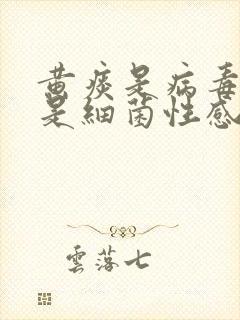 黄痰是病毒
是细菌性感
雲落七